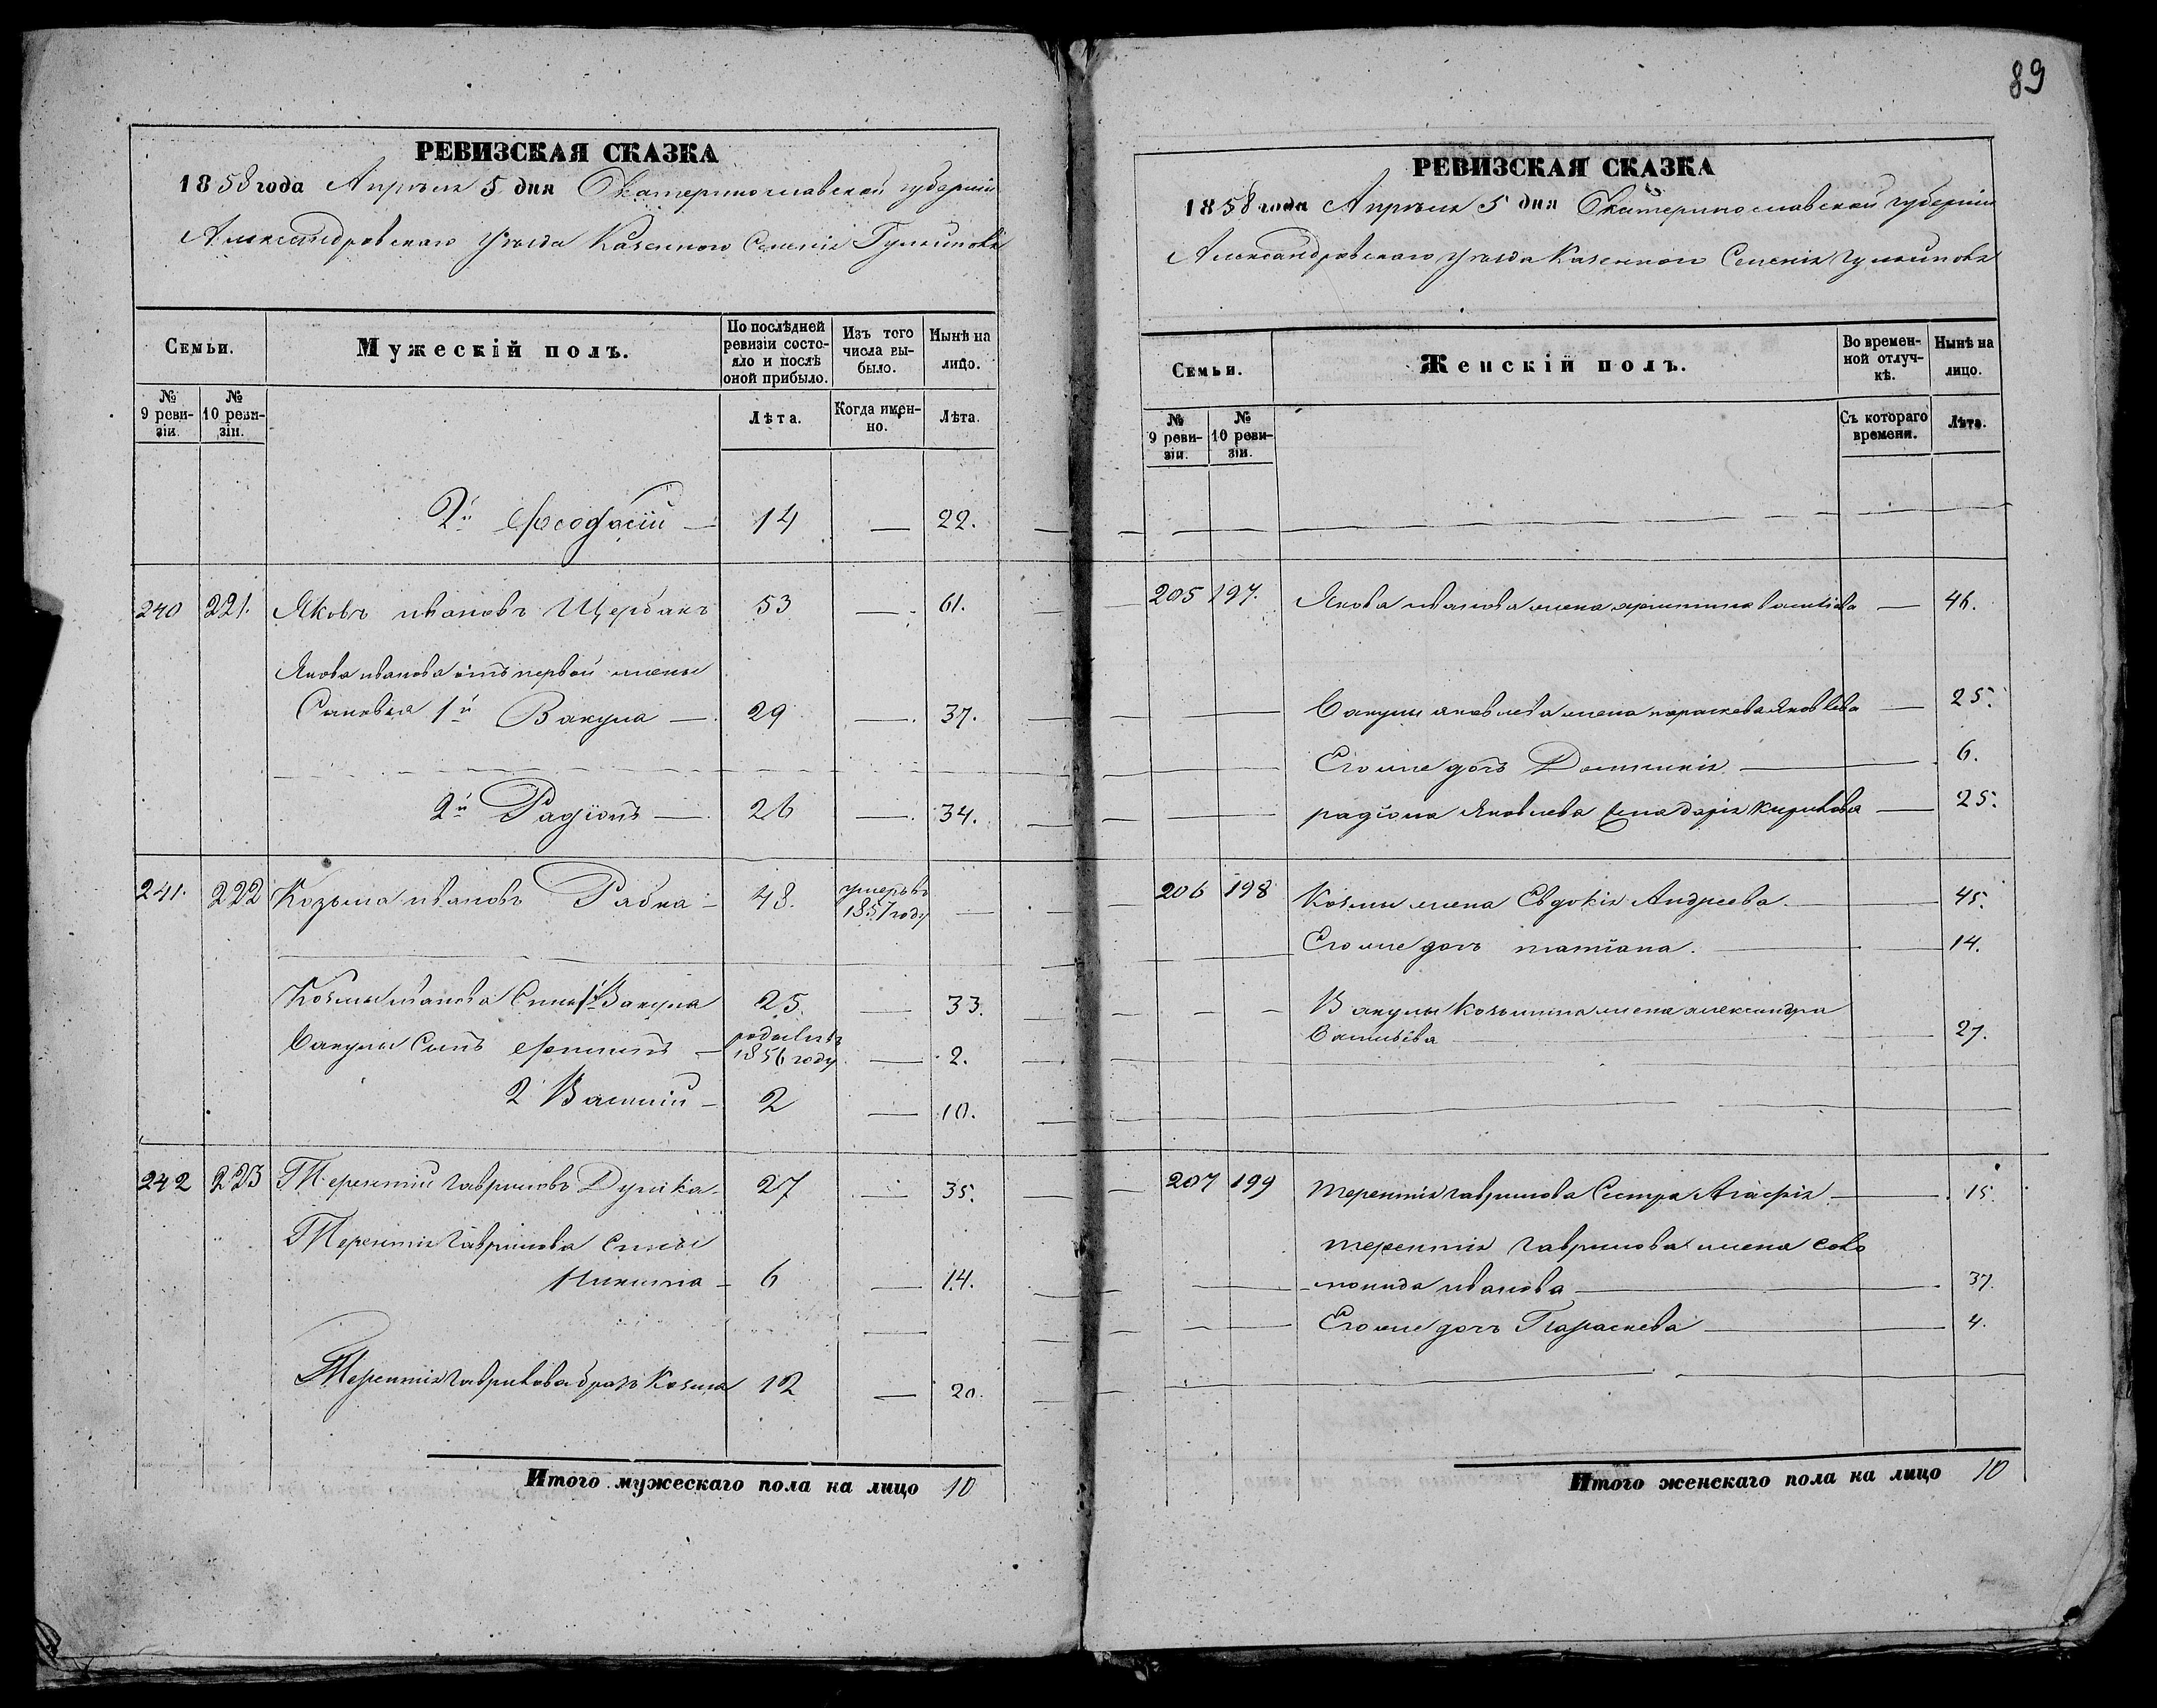 РЕВИЗСКАЯ СКАЗКА
1858 года Апрѣля 5 дня Екатеринославской губерніи
Александровскаго уѣзда Казенного Селенія
Семьи.
Мужескій полъ.
По послѣдней ревизіи состояло и послѣ оной прибыло.
Изъ того числа выбыло.
Нынѣ на лицо.
№ 9 ревизіи.
№ 10 ревизіи.
Лѣта.
Когда именно.
Лѣта.
2й Феодосій — 14 — 22.
240 221. Яковъ ивановъ Щербакъ 53 — 61.
Якова иванова отъ первой жены
Сыновья 1й Вакула — 29 — 37.
2й Радіонъ — 26 — 34.
241. 222 Козьма ивановъ Рябка — 48. умеръ въ 1857 году —
Козьмы иванова Сынъ 1й Вакула 25. — 33.
Вакулы Сынъ Филипъ — родился въ 1856 году — 2.
2 Василій — 2 — 10.
242 223 Терентій гавриловъ Душка 27 — 35.
Терентія гаврилова Сыны
Никита — 6 — 14.
Терентія гаврилова братъ Козьма 12 — 20.
Итого мужескаго пола на лицо 10
89
РЕВИЗСКАЯ СКАЗКА
1858 года Апрѣля 5 дня Екатеринославской губерніи
Александровскаго уѣзда Казенного Селенія
Семьи.
Женскій полъ.
Во временной отлучкѣ.
Нынѣ на лицо.
№ 9 ревизіи.
№ 10 ревизіи.
Съ котораго времени.
Лѣта.
205 197. Якова иванова жена василіева — 46.
Вакулы яковлева жена параскева Яковлева — 25.
Его же дочь Домникія — 6.
радіона Яковлева жена дарія кирилова — 25.
206 198 Козьмы жена Евдокія Андреева — 45.
Его же дочь татіана. — 14.
Вакулы козьмина жена александра
Василіева — 27.
207 199 терентія гаврилова Сестра Агафія — 15.
терентія гаврилова жена соло
монида иванова — 37.
Его же дочь Параскева — 4.
Итого женскаго пола на лицо 10